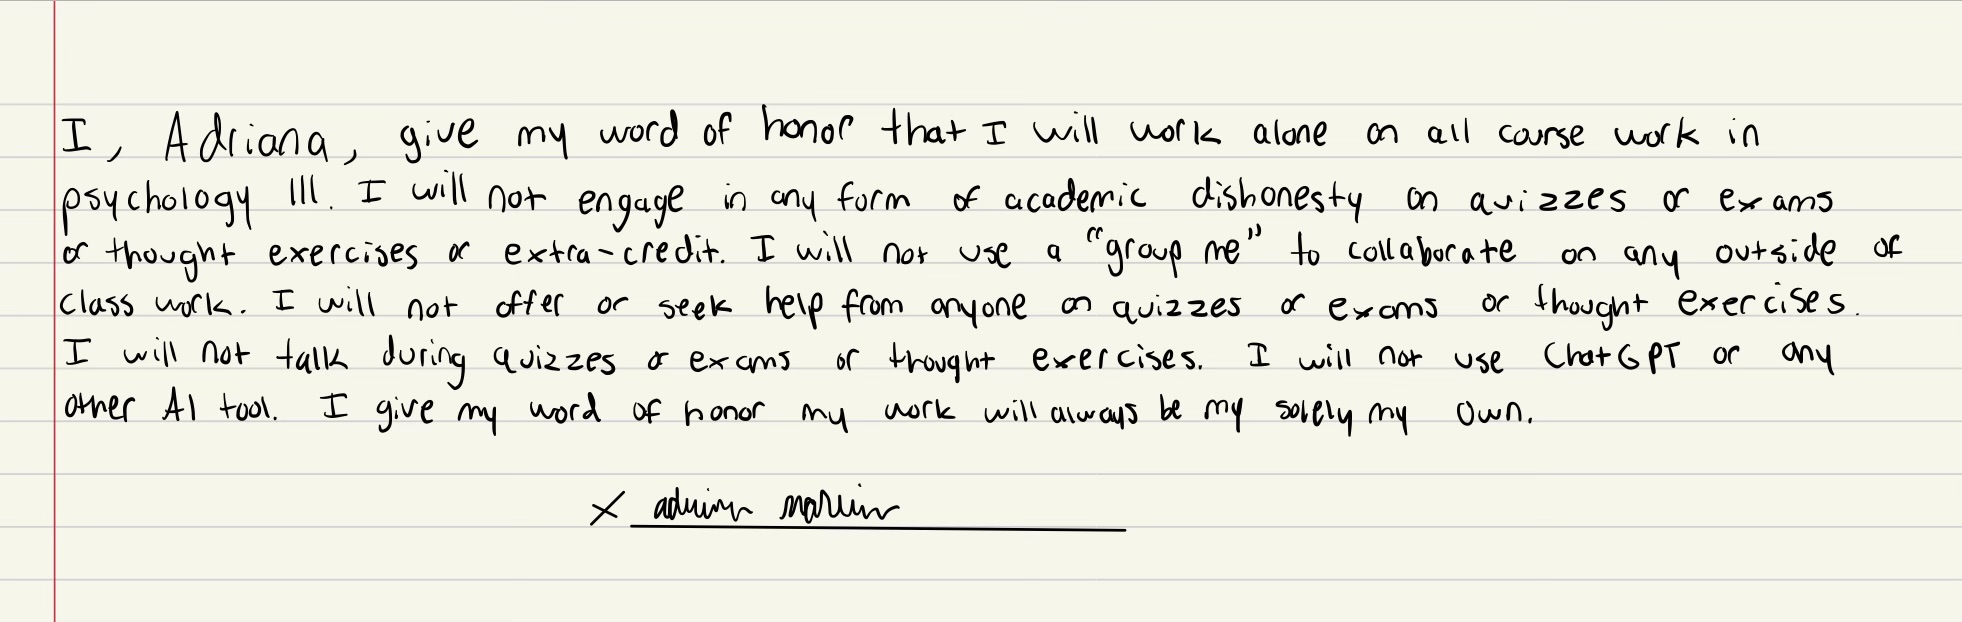 I, Adriana, give my word of honor that I will work alone on all course work in
psychology 111. I will not engage in any form of academic dishonesty on quizzes or exams
or thought exercises or extra-credit. I will not use a "group me" to collaborate on any outside of
class work. I will not offer or seek help from anyone on quizzes or exams or thought exercises.
I will not talk during quizzes or exams or thought exercises. I will not use ChatGPT or any
other AI tool. I give my word of honor my work will always be my solely my own.
X